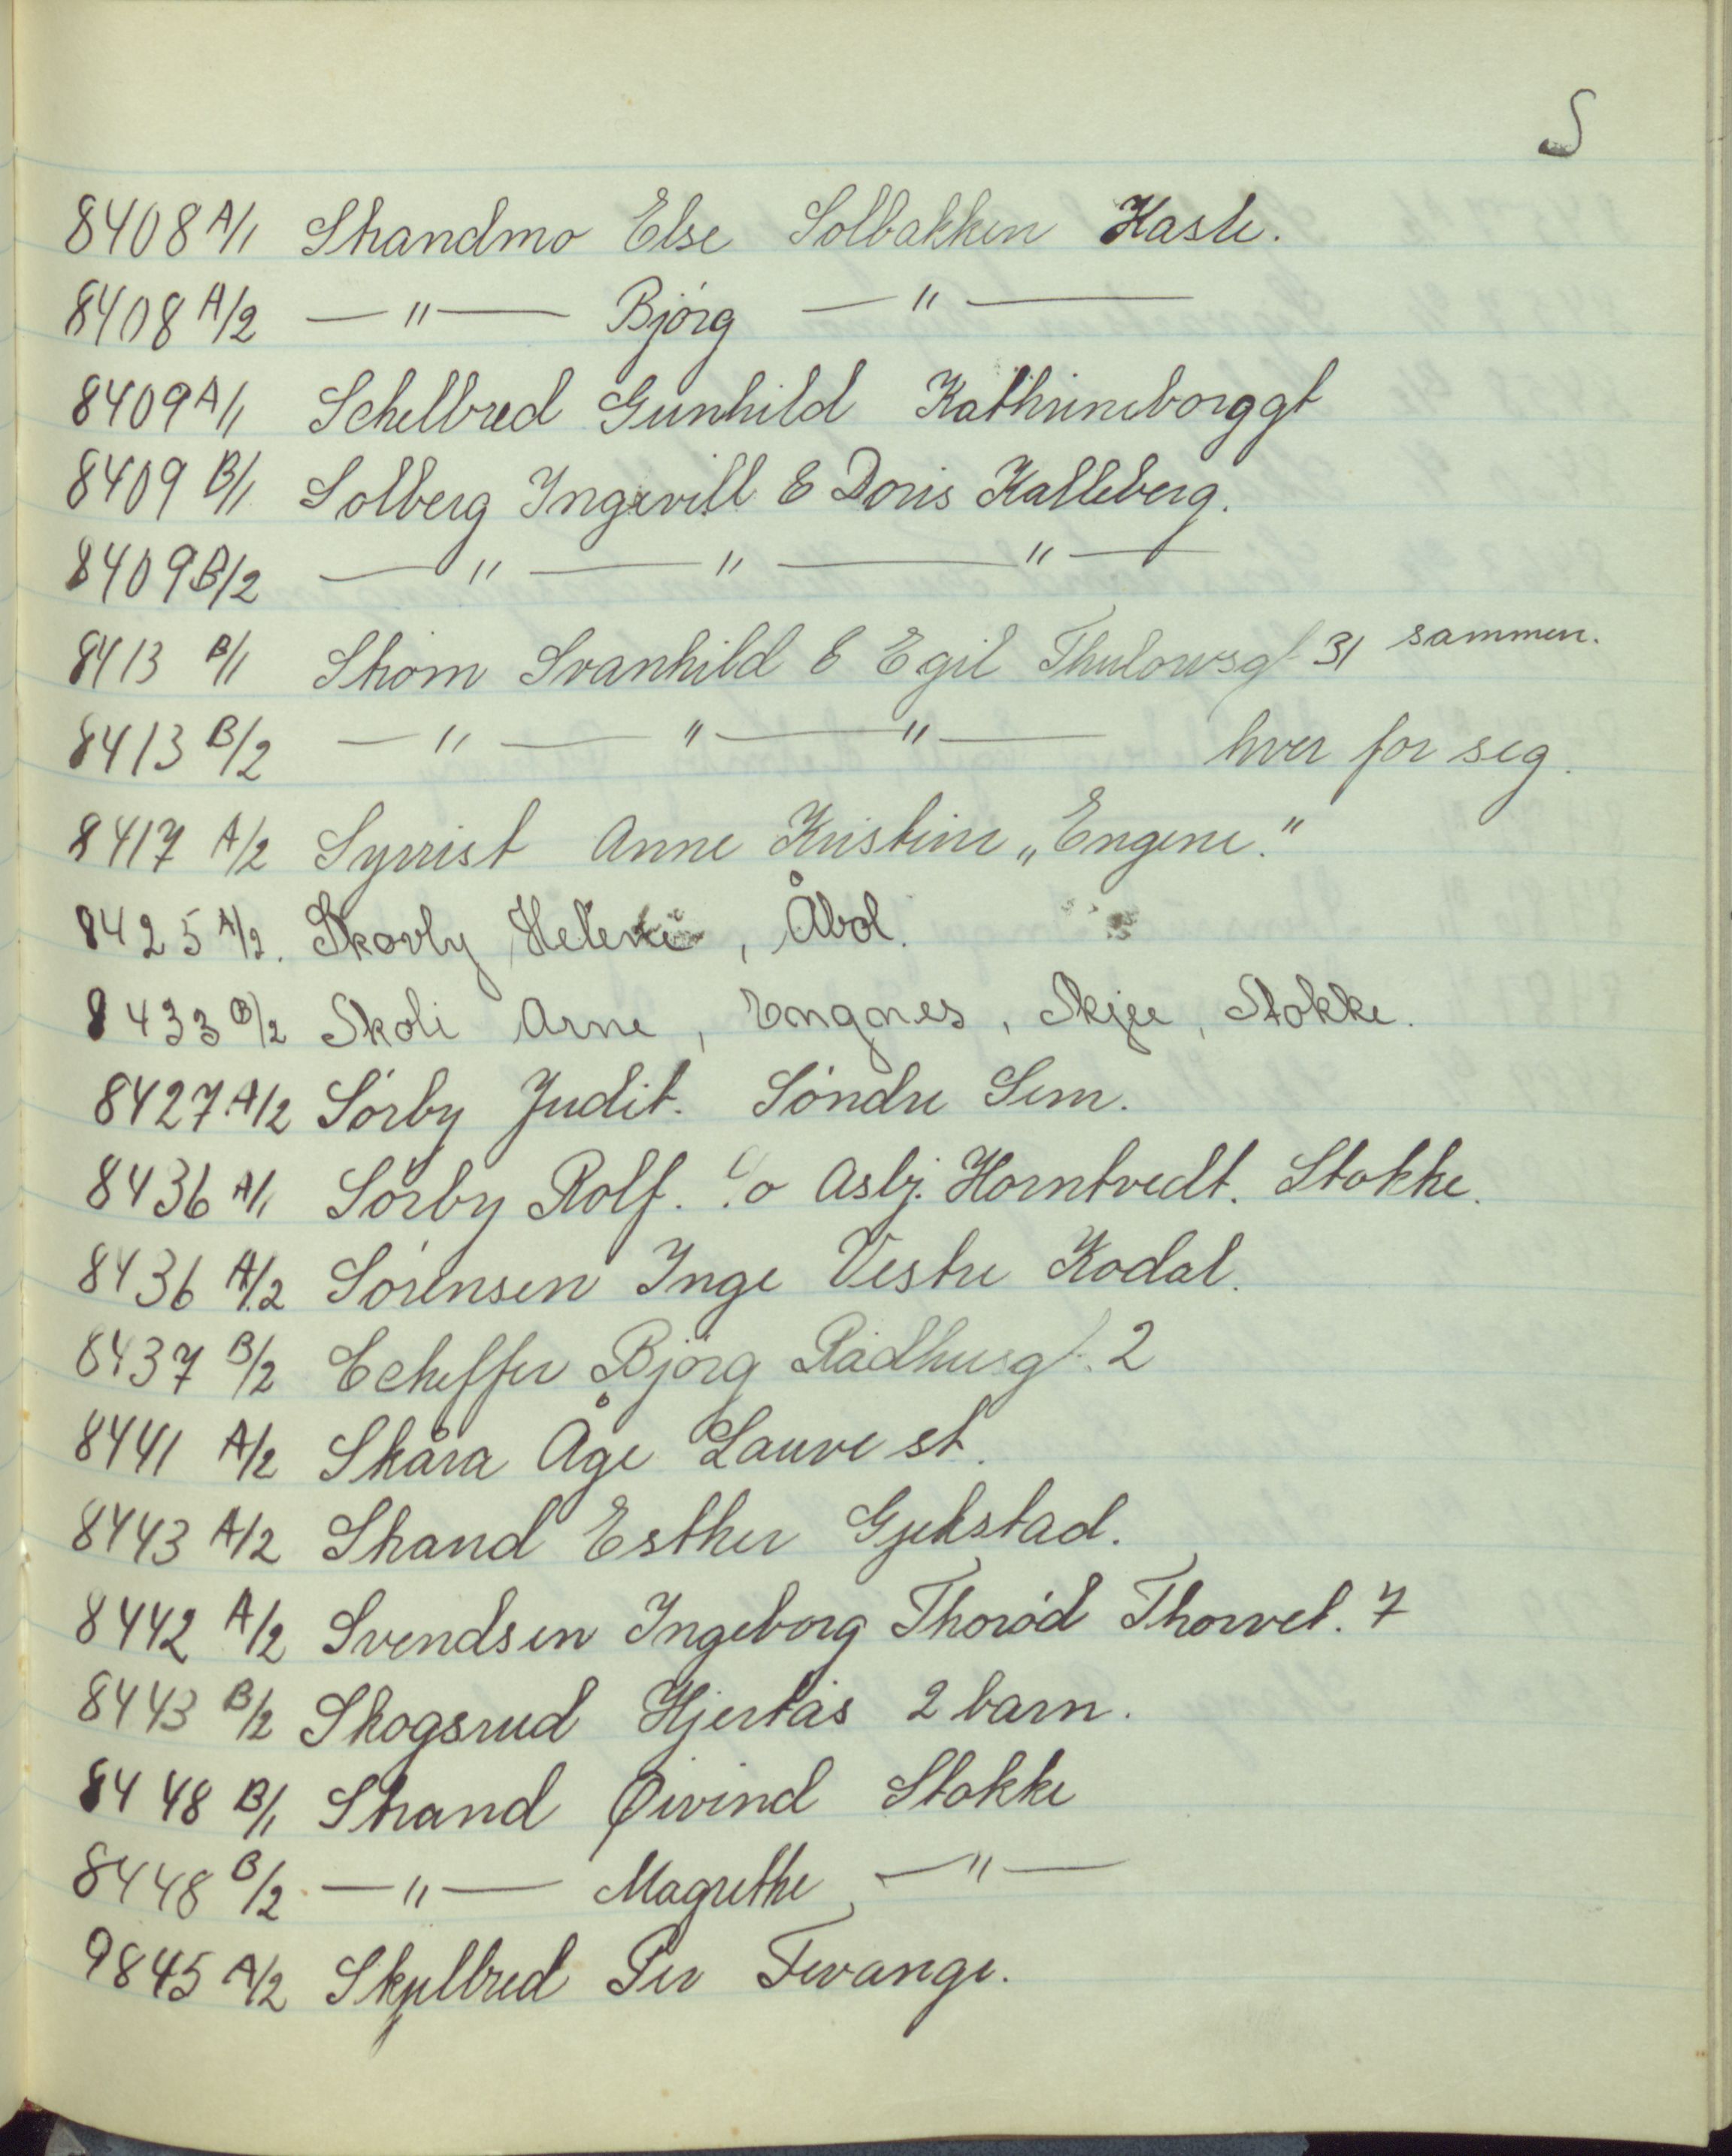 S
8408 A/1 Strandmo Else Solbakken Hasle.
8408 A/2 —"— Bjørg —"—
8409 A/1 Schelbred Gunhild Kathrineborggt
8409 B/1 Solberg Ingervill & Doris Kalleberg.
8409 B/2 —"— —"— —"—
8413 B/1 Strøm Svanhild & Egil Thulowsgt 31 sammen.
8413 B/2 —"— —"— —"— hver for seg.
8417 A/2 Syrrist Anne Kristine „Engene."
8425 A/2. Skovly Helene, Åbol.
8433 B/2 Skoli Arne, Engnes, Skjee, Stokke.
8427 A/2 Sørby Judit. Søndre Sem.
8436 A/1 Sørby Rolf. c/o Asbj. Horntvedt. Stokke.
8436 A/2 Sørensen Inge Vestre Kodal.
8437 B/2 Scheffer Bjørg Rådhusgt. 2
8441 A/2 Skåra Åge Lauve st.
8443 A/2 Strand Esther Gjekstad.
8442 A/2 Svendsen Ingeborg Thorød Thorvet. 7
8443 B/2 Skogsrud Hjertås 2 barn.
8448 B/1 Strand Øivind Stokke
8448 B/2 —"— Magrethe —"—
9845 A/2 Skjelbred Per Tevange.